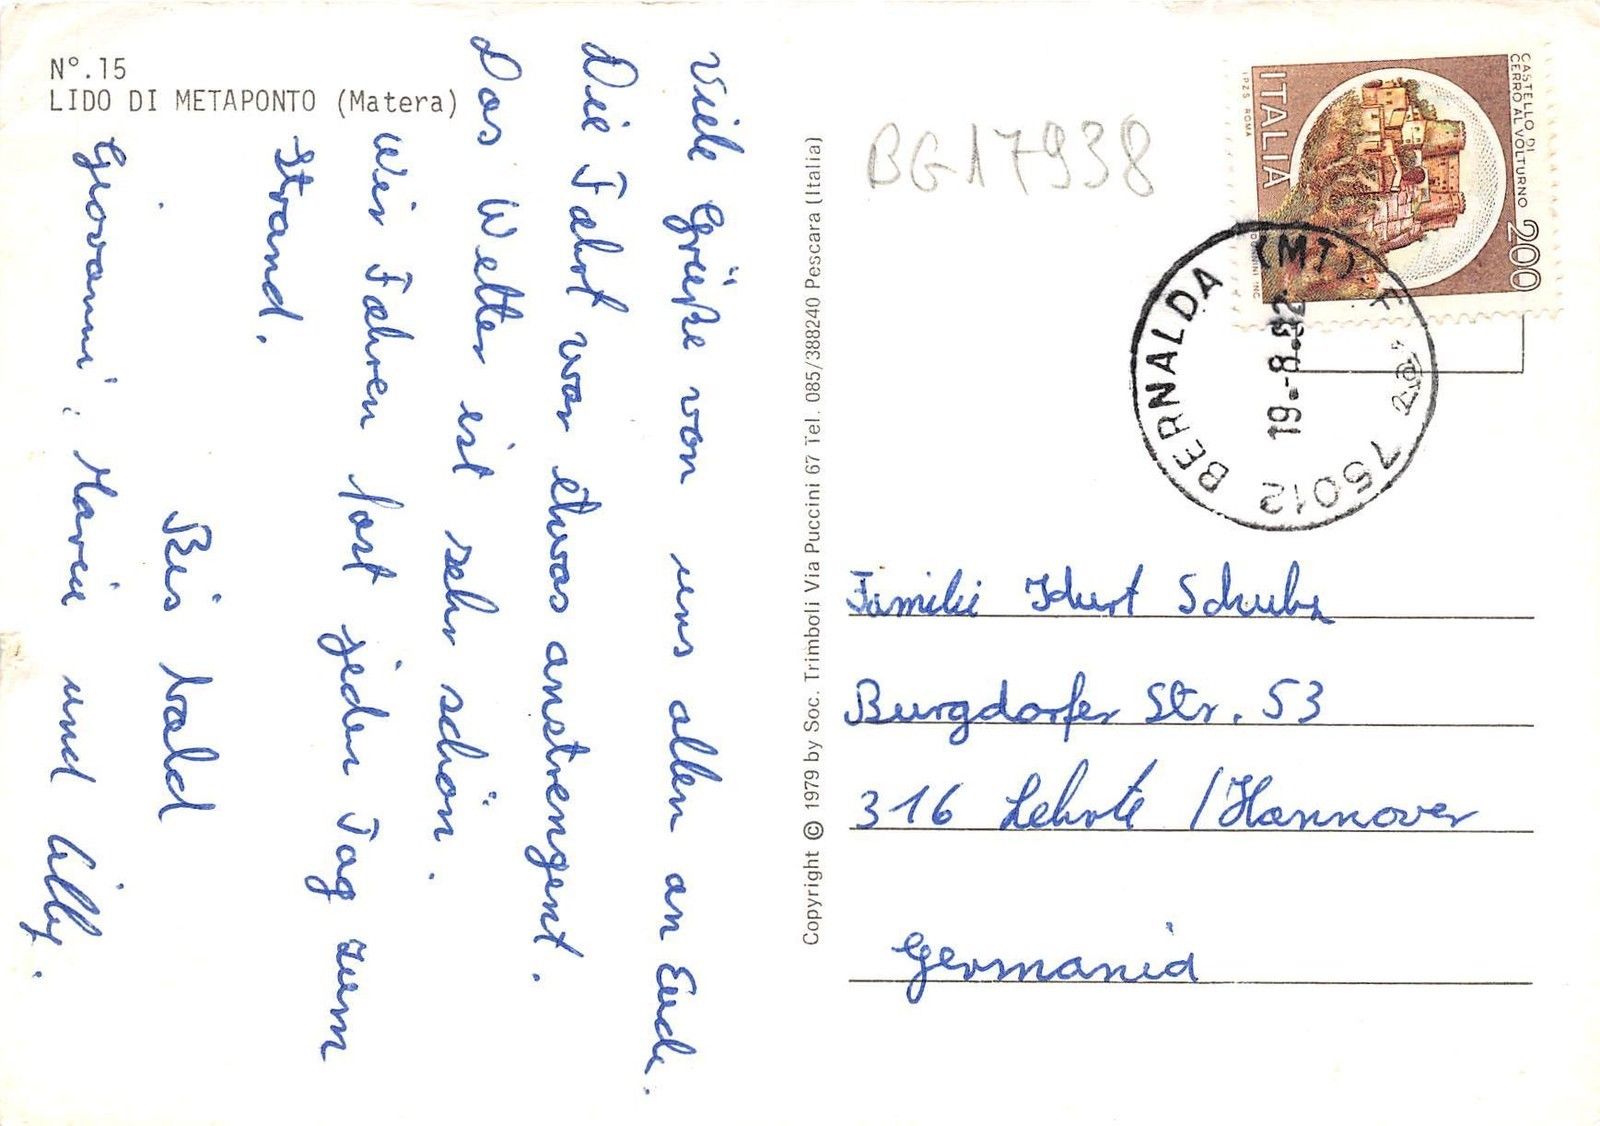 N°.15
LIDO DI METAPONTO (Matera)
Viele Grüße von uns allen an Euch.
Die Fahrt war etwas anstrengent.
Das Wetter ist sehr schön.
Wir Fahren fast jeden Tag zum
Strand.
Bis bald
Giovanni, Maria und Cilly.
Copyright © 1979 by Soc. Trimboli Via Puccini 67 Tel. 085/388240 Pescara (Italia)
BG17938
CASTELLO DI
CERRO AL VOLTURNO
200
ITALIA
I.P.Z.S. ROMA
75012 BERNALDA (MT)
19.-8.82
Familie Kurt Schulz
Burgdorfer Str. 53
316 Lehrte /Hannover
Germania